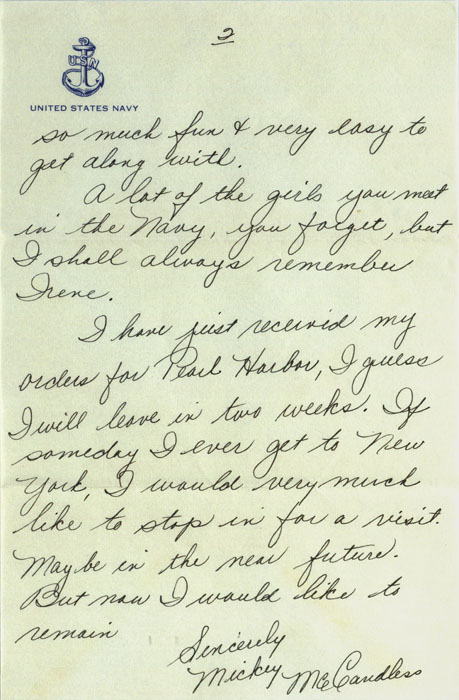 2
USN
UNITED STATES NAVY
so much fun & very easy to
get along with.
A lot of the girls you meet
in the Navy, you forget, but
I shall always remember
Irene.
I have just received my
orders for Pearl Harbor, I guess
I will leave in two weeks. If
someday I ever get to New
York, I would very much
like to stop in for a visit.
Maybe in the near future.
But now I would like to
remain
Sincerely
Mickey McCandless